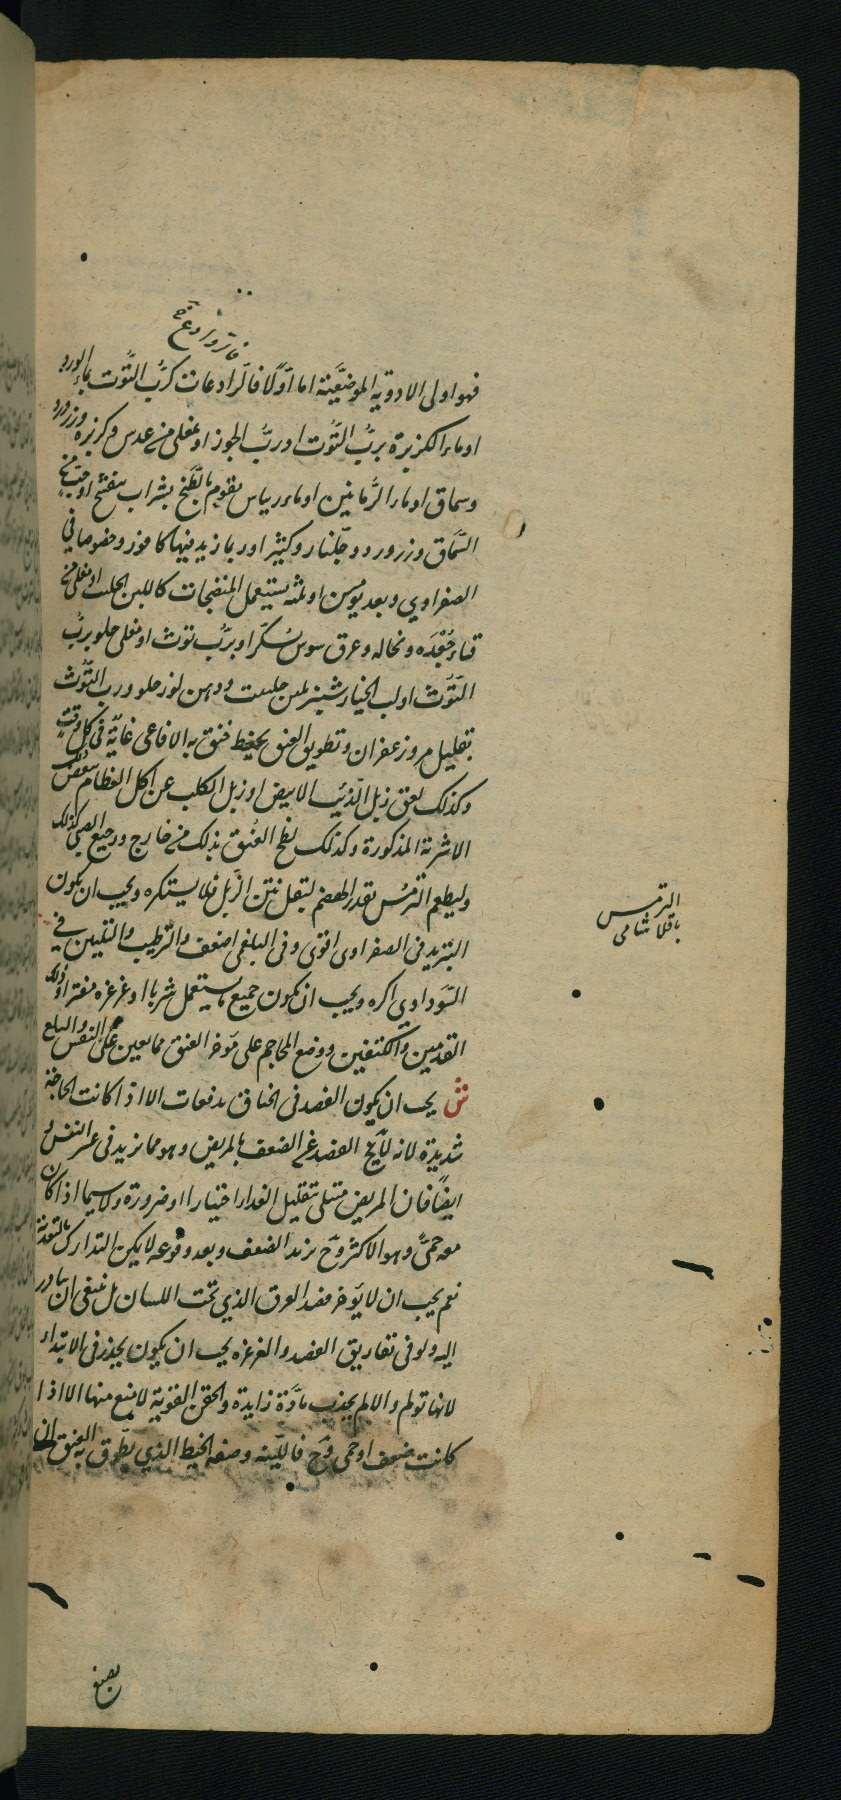 فهو اولى الادوية الموضعية اما اولا فالرادعات كرب التوت بماء الورد
او ماء الكزبرة برب التوت او رب الجوز او بمغلى من عدس و كزبره و زرورد
و سماق او ماء الرمانين او ماء ريباس يقوم بالطبخ بشراب بنفسج او حب من
السماق و زرورد و جلنار و كثيرا و ربما زيد فيها كافور و خصوصا في
الصفراوي و بعد يومين او ثلثه يستعمل المنضجات كاللبن الحليب او مغلى من
قثاء جعده و نخاله و عرق سوس بسكر او برب توث او مغلى حلو برب
التوث او لب الخيار شنبر بلبن حليب و دهن لوز حلو و رب التوث
بقليل مر و زعفران و تطويق العنق بخيط خنق به الافاعى غاية في كل وقت
و كذلك لعق زبل الذئب الابيض او زبل الكلب عن اكل العظام ببعض
الاشربة المذكورة و كذلك لطخ العنق بذلك من خارج و رجيع الصبي كذلك
وليطعم الترمس بقدر الهضم ليقل نتن الزبل فلا يستكره و يجب ان يكون
التبريد فى الصفراوى اقوى و فى البلغمى اضعف و الترطيب و التليين في
السوداوي اكره و يجب ان يكون جميع ما يستعمل شربا او غرغره مفترا و دلك
القدمين و الكتفين و وضع المحاجم على مؤخر العنق مما يعين على النفس و البلع
ش يجب ان يكون الفصد فى الخناق بدفعات الا اذا كانت الحاجة
شديدة لانه الفصد الضعف بالمريض و هو مما يزيد فى عسر النفس و
ايضا فان المريض مبتلى بتقليل الغداء اختيارا او ضرورة و لا سيما اذا كان
معه حمى و هو الاكثر و ح يزيد الضعف و بعد وقوعه لا يمكن التدارك بالتغذية
نعم يجب ان لا يؤخر فصد العرق الذي تحت اللسان بل ينبغى ان يبادر
اليه و لو فى تفاريق الفصد و الغرغره يجب ان يكون بحذر فى الابتداء
لانها تولم و الالم يجذب مادة زايدة و الحقن القوية لا يمنع منها الا اذا
كانت ضعف او حمى و ح فاللينه و صفة الخيط الذي يطوق به العنق ان
الترمس
باقلا شامى
يصبغ